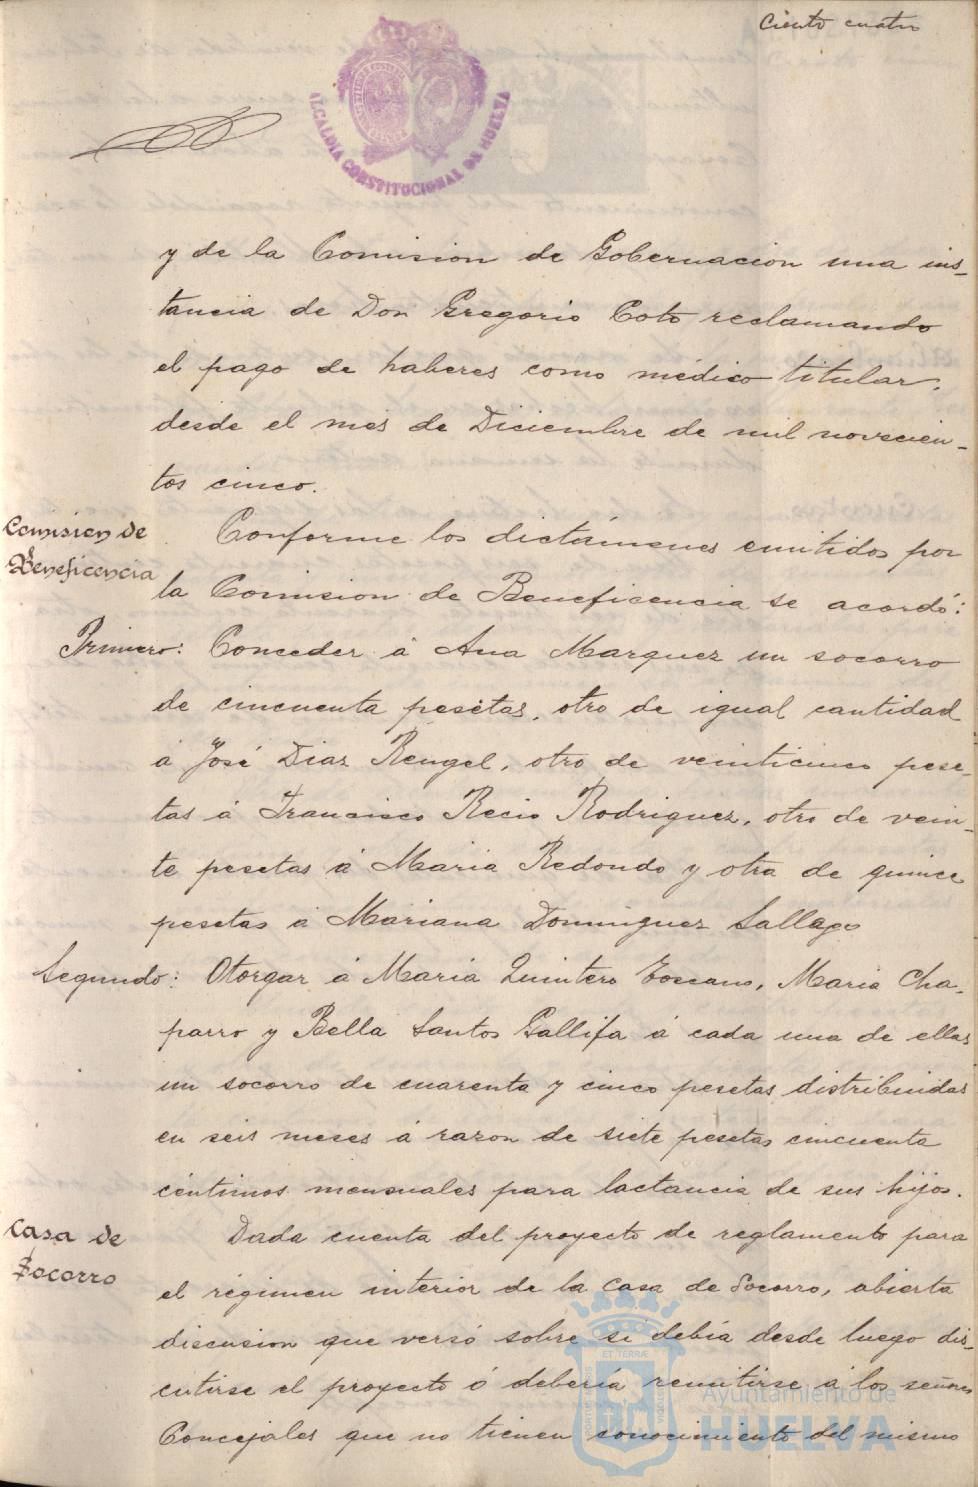 Ciento cuatro
ALCALDIA CONSTITUCIONAL DE HUELVA
y de la Comision de Gobernacion una ins-
tancia de Don Gregorio Coto reclamando
el pago de haberes como médico titular,
desde el mes de Diciembre de mil novecien-
tos cinco.
Comisión de
Beneficencia
Conforme los dictámenes emitidos por
la Comision de Beneficencia se acordó:
Primero: Conceder á Ana Marquez un socorro
de cincuenta pesetas, otro de igual cantidad
á José Diaz Rengel, otro de veinticinco pese-
tas á Francisco Recio Rodriguez, otro de vein-
te pesetas á Maria Redondo y otra de quince
pesetas á Mariana Dominguez Sallago
Segundo: Otorgar á Maria Quintero Toscano, Maria Cha-
parro y Bella Santos Gallifa á cada una de ellas
un socorro de cuarenta y cinco pesetas distribuidas
en seis meses á razon de siete pesetas cincuenta
céntimos mensuales para lactancia de sus hijos.
Casa de
Socorro
Dada cuenta del proyecto de reglamento para
el régimen interior de la Casa de Socorro, abierta
discusion que versó sobre si debía desde luego dis-
cutirse el proyecto ó debería remitirse á los señores
Concejales que no tienen conocimiento del mismo
Ayuntamiento de
HUELVA